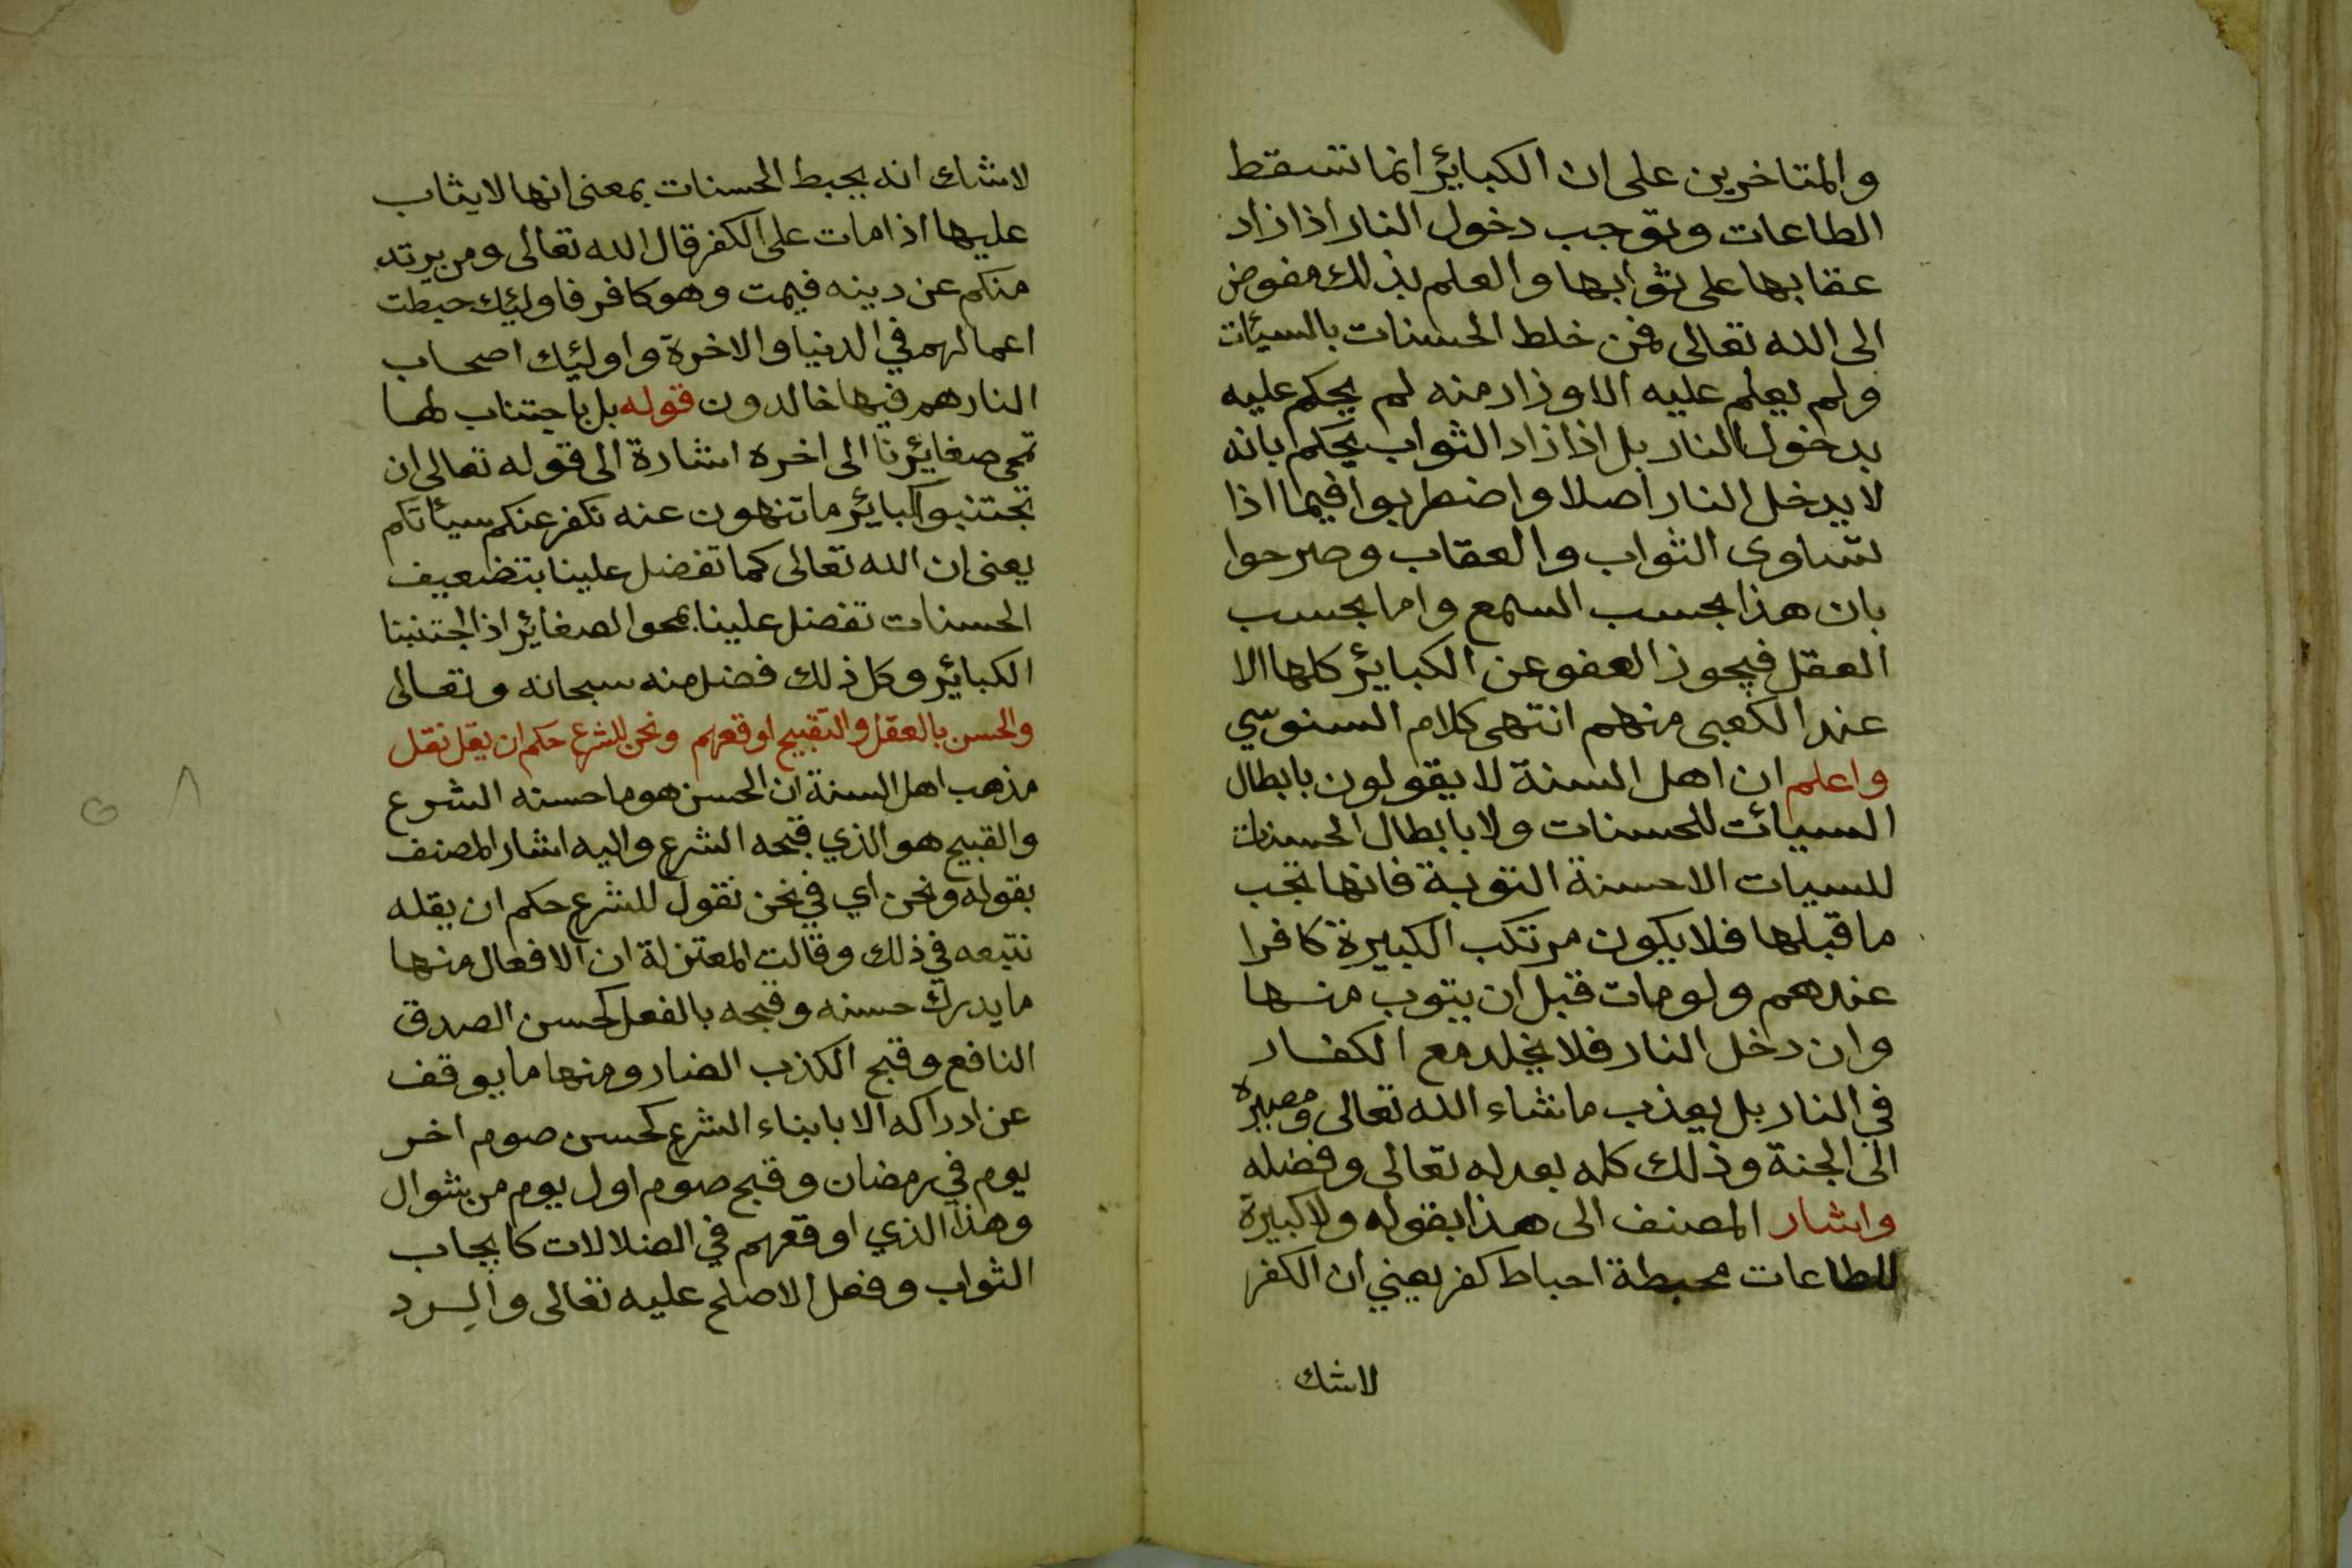 والمتاخرين على ان الكبائر انما تسقط
الطاعات وتوجب دخول النار اذا زاد
عقابها على ثوابها والعلم بذلك مفوض
الى الله تعالى فمن خلط الحسنات بالسيئات
ولم يعلم عليه الاوزار منه لم يحكم عليه
بدخول النار بل اذا زاد الثواب يحكم بانه
لا يدخل النار اصلا واضطربوا فيما اذا
تساوى الثواب والعقاب وصرحوا
بان هذا بحسب السمع واما بحسب
العقل فيجوز العفو عن الكبائر كلها الا
عند الكعبى منهم انتهى كلام السنوسي
واعلم ان اهل السنة لا يقولون بابطال
السيائت للحسنات ولا بابطال الحسنات
للسيات الا حسنة التوبة فانها تجب
ما قبلها فلا يكون مرتكب الكبيرة كافرا
عندهم ولو مات قبل ان يتوب منها
وان دخل النار فلا يخلد مع الكفار
في النار بل يعذب ما شاء الله تعالى ومصيره
الى الجنة وذلك كله بعدله تعالى وفضله
واشار المصنف الى هذا بقوله ولا كبيرة
للطاعات محبطة احباط كفر يعني ان الكفر
لا شك
لا شك انه يحبط الحسنات بمعنى انها لا يثاب
عليها اذا مات على الكفر قال الله تعالى ومن يرتد
منكم عن دينه فيمت وهو كافر فاولئك حبطت
اعمالهم في الدنيا والاخرة واولئك اصحاب
النار هم فيها خالدون قوله بل باجتناب لها
تمحى صغائرنا الى اخره اشارة الى قوله تعالى ان
تجتنبوا كبائر ما تنهون عنه نكفر عنكم سيأتكم
يعنى ان الله تعالى كما تفضل علينا بتضعيف
الحسنات تفضل علينا بمحو الصغائر اذا اجتنبنا
الكبائر وكل ذلك فضل منه سبحانه وتعالى
والحسن بالعقل والتقبيح اوقعهم ونحن للشرع حكم ان يقل نقل
مذهب اهل السنة ان الحسن هو ما حسنه الشرع
والقبيح هو الذي قبحه الشرع واليه اشار المصنف
بقوله ونحن اي فنحن نقول للشرع حكم ان يقله
نتبعه في ذلك وقالت المعتزلة ان الافعال منها
ما يدرك حسنه وقبحه بالفعل كحسن الصدق
النافع وقبح الكذب الضار ومنها ما يوقف
عن ادراكه الا بابناء الشرع كحسن صوم اخر
يوم في رمضان وقبح صوم اول يوم من شوال
وهذا الذي اوقعهم في الضلالات كايجاب
الثواب وفعل الاصلح عليه تعالى والرد